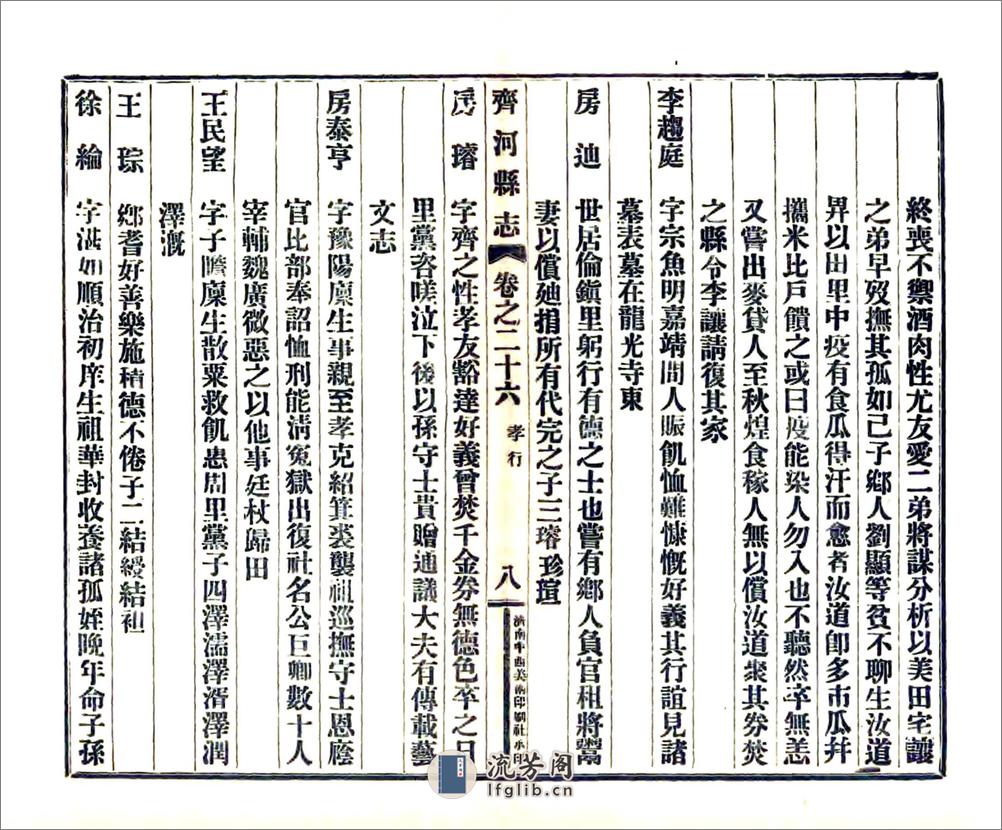 終喪不禦酒肉性尤友愛二弟將謀分析以美田宅讓
之弟早歿撫其孤如己子鄉人劉顯等貧不聊生汝道
畀以田里中疫有食瓜得汗而愈者汝道卽多市瓜幷
攜米比戶饋之或曰疫能染人勿入也不聽然卒無恙
又嘗出麥貸人至秋煌食稼人無以償汝道聚其券焚
之縣令李讓請復其家
李趨庭 字宗魚明嘉靖間人賑飢恤難慷慨好義其行誼見諸
墓表墓在龍光寺東
房迪 世居倫鎭里躬行有德之士也嘗有鄉人負官租將鬻
妻以償廸捐所有代完之子三璿珍瑄
齊河縣志 卷之二十六 孝行 八 濟南午夜美術印刷社承印
房璿 字齊之性孝友豁達好義曾焚千金券無德色卒之日
里黨咨嗟泣下後以孫守士貴贈通議大夫有傳載藝
文志
房泰亨 字豫陽廩生事親至孝克紹箕裘襲祖巡撫守士恩廕
官比部奉詔恤刑能淸冤獄出復社名公巨卿數十人
宰輔魏廣微惡之以他事廷杖歸田
王民望 字子瞻廩生散粟救飢患周里黨子四澤濡澤湑澤潤
澤漑
王琮 鄉耆好善樂施積德不倦子二結綬結祖
徐綸 字湛如順治初庠生祖華封收養諸孤姪晚年命子孫
流芳阁
lfglib.cn